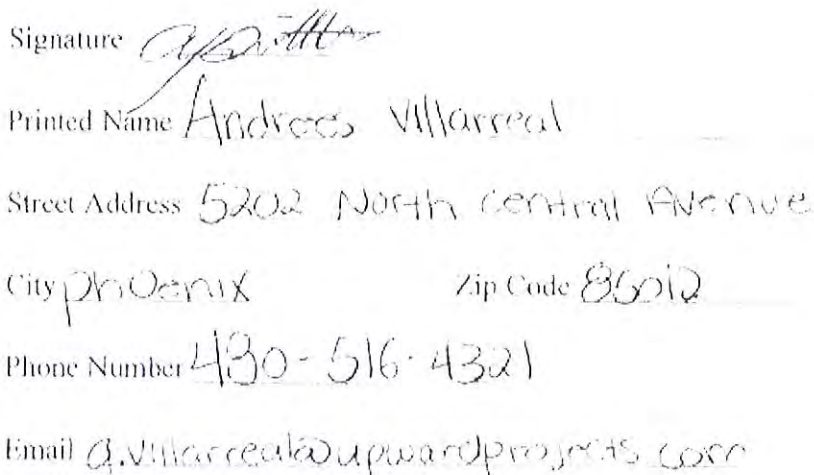 Signature
Printed Name Andrees Villarreal
Street Address 5202 North Central Avenue
City Phoenix Zip Code 85012
Phone Number 480-516-4321
Email a.villarreal@upwardprojects.com